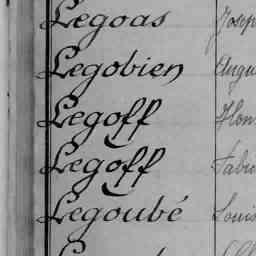 Legoas Josep
Legobien Augu
Legoff
Legoff Fabie
Legoubé Louis